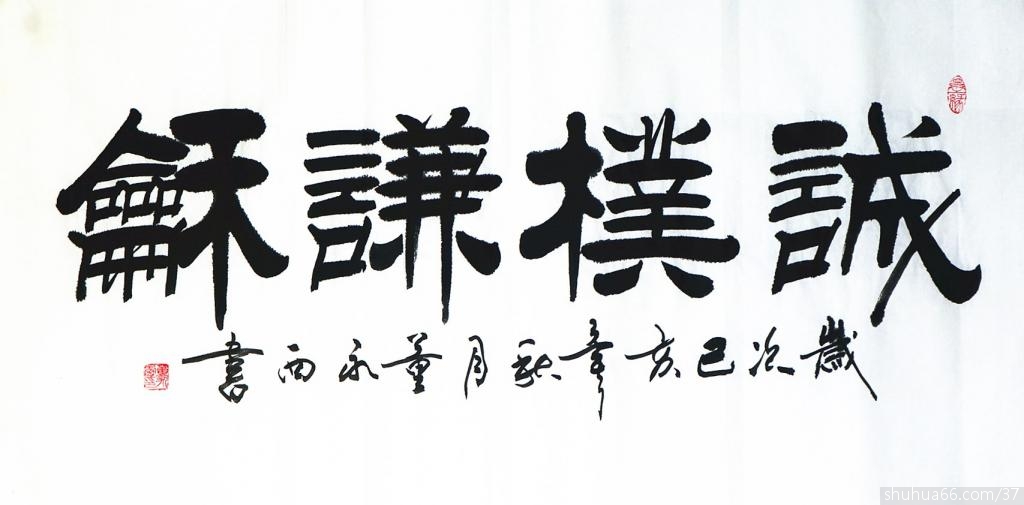 誠樸謙龢
歲次己亥年秋月董永西書
shuhua66.com/37